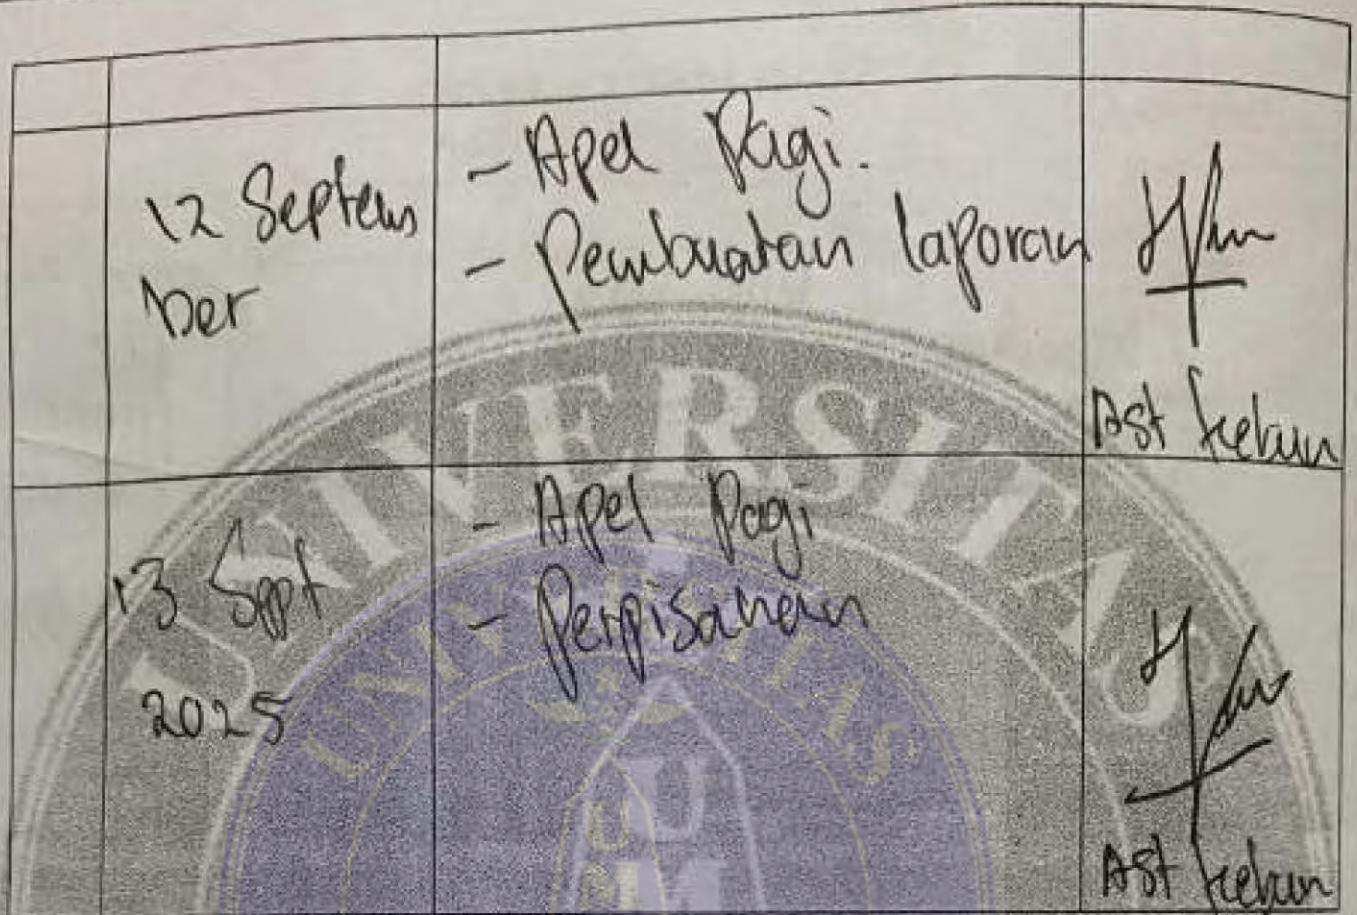 12 Septem
ber
- Apel Pagi.
- Pembuatan laporan
Ast kebun
13 Sept
2025
- Apel Pagi
- Perpisahan
Ast kebun
UNIVERSITAS
UNIVERSITAS
U
M
U
M